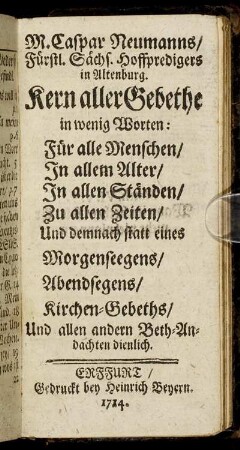 M. Caspar Neumanns/
Fürstl. Sächs. Hoffpredigers
in Altenburg.
Kern aller Gebethe
in wenig Worten:
Für alle Menschen/
In allem Alter/
In allen Ständen/
Zu allen Zeiten/
Und demnach statt eines
Morgenseegens/
Abendsegens/
Kirchen-Gebeths/
Und allen andern Beth-An-
dachten dienlich.
ERFFURT/
Gedruckt bey Heinrich Beyern.
1714.